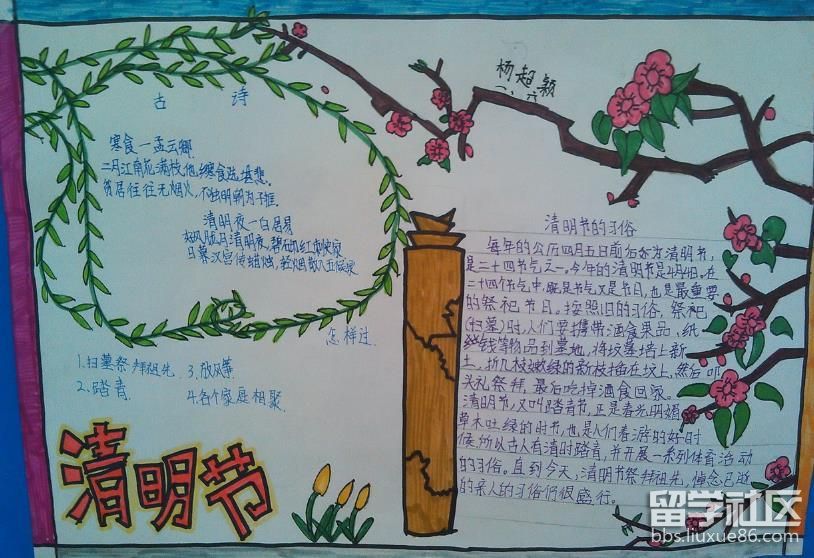 古 诗
寒食一孟云卿
二月江南花满枝,他乡寒食远堪悲。
贫居往往无烟火,不独明朝为子推
清明夜一白居易
好风胧月清明夜,碧砌红轩刺史家
日暮汉宫传蜡烛,轻烟散入五侯家
怎样过
1.扫墓祭拜祖先 3.放风筝
2.踏青 4.各个家庭相聚
清明节
杨超颖
一、六
清明节的习俗
每年的公历四月五日前后为清明节,
是二十四节气之一。今年的清明节是4月4日。在
二十四个节气中,既是节气又是节日,也是最重要
的祭祀节日。按照旧的习俗,祭祀
(扫墓)时,人们要携带酒食果品、纸
钱等物品到墓地,将坟墓培上新
土,折几枝嫩绿的新枝插在坟上,然后叩
头礼祭拜,最后吃掉酒食回家。
清明节,又叫踏青节,正是春光明媚
草木吐绿的时节,也是人们春游的好时
候,所以古人有清时踏青,并开展一系列体育活动
的习俗。直到今天,清明节祭拜祖先,悼念已逝
的亲人的习俗仍很盛行。
留学社区
bbs.liuxue86.com